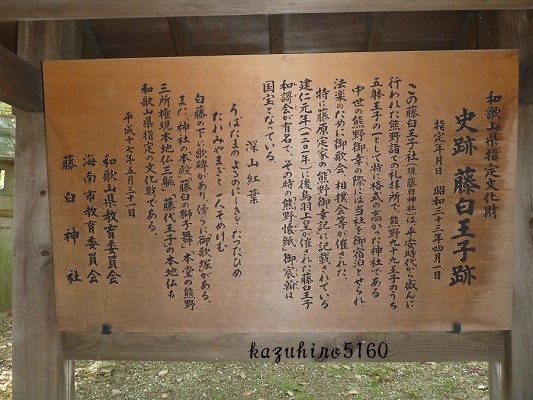 和歌山県指定文化財
史跡 藤白王子跡
指定年月日 昭和三十三年四月一日
この藤白王子社(現藤白神社)は、平安時代から盛んに
行われた熊野詣での礼拝所で、熊野九十九王子のうち
五躰王子の一として特に格式の高かった神社である
中世の熊野御幸の際には当社を御宿泊とせられ
法楽のために御歌会、相撲会等が催された。
特に藤原定家の熊野御幸記に記載されている
建仁元年(一二〇一年)に後鳥羽上皇が催された藤白王子
和謌会が有名で、その時の熊野懐紙(御宸翰)は
国宝となっている。
深山紅葉
うばたまのよるのにしきをたつたひめ
たれみやまきと一人そめけむ
白藤の下に歌碑があり、傍らに御歌塚がある。
また、神社の本殿、藤白の獅子舞、本堂の熊野
三所権現本地仏三躯、藤代王子の本地仏も
和歌山県指定の文化財である。
平成十七年五月三十一日
和歌山県教育委員会
海南市教育委員会
藤白神社
kazuhiro5160